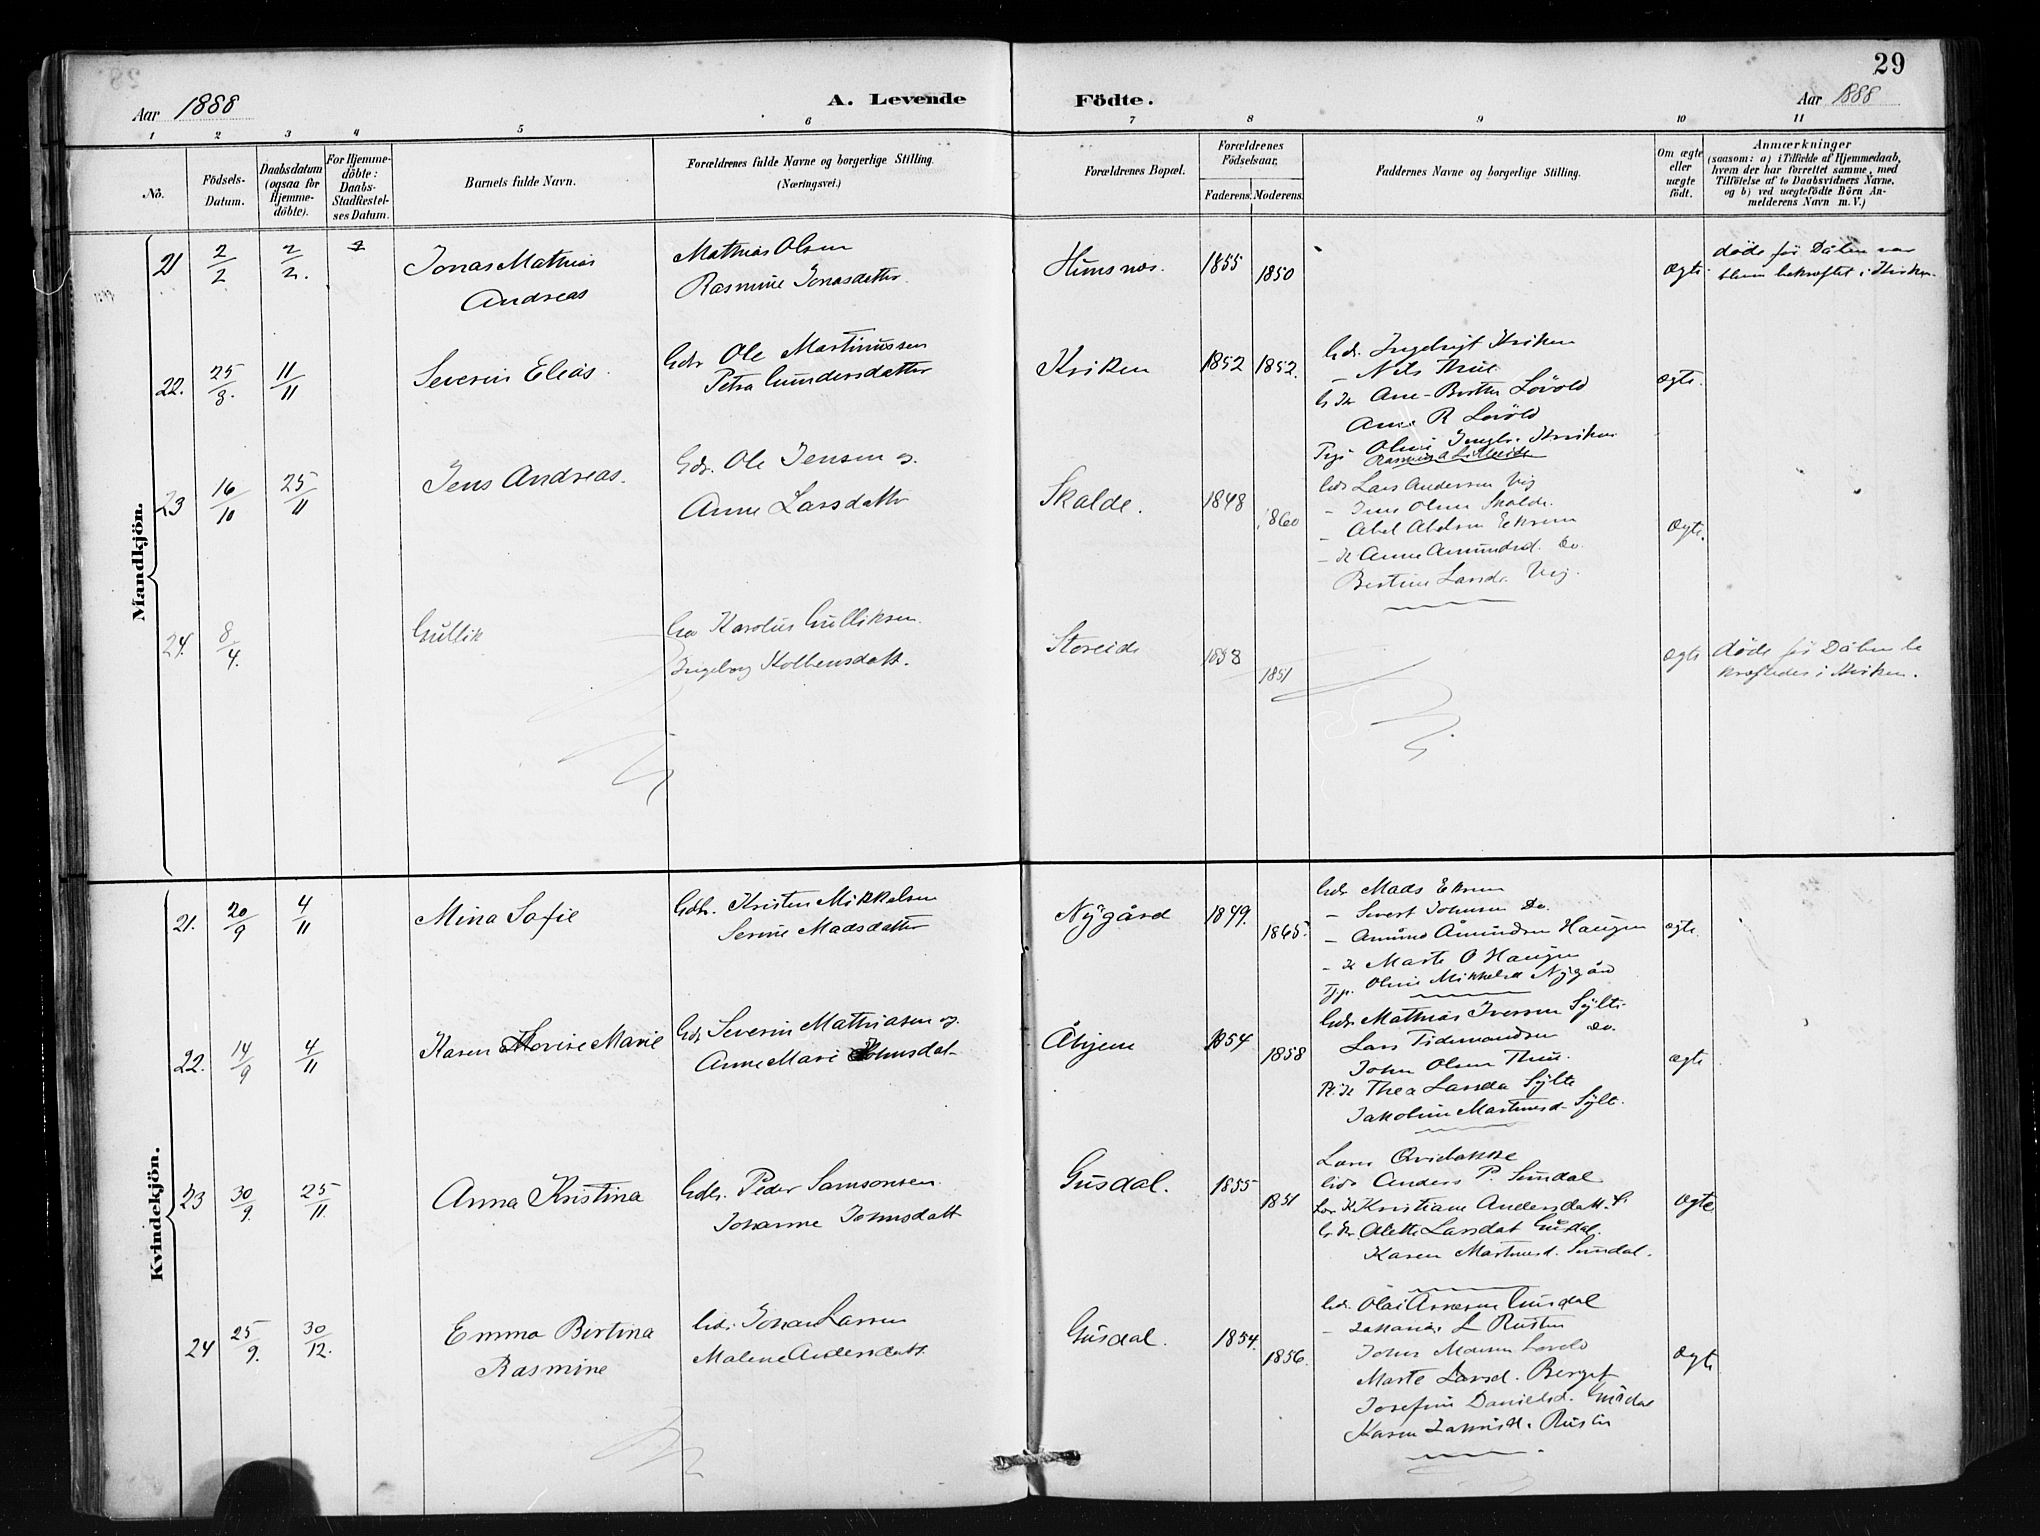 29
Aar 1888
A. Levende
Födte.
Aar 1888
1 2 3 4 5 6 7 8 9 10 11
No.
Födsels-
Datum.
Daabsdatum
(ogsaa for
Hjemme-
döbte).
For Hjemme-
döbte:
Daabs-
Stadfæstel-
ses Datum.
Barnets fulde Navn.
Forældrenes fulde Navne og borgerlige Stilling.
(Næringsvei.)
Forældrenes Bopæl.
Forældrenes
Födselsaar.
Faderens. Moderens.
Faddernes Navne og borgerlige Stilling.
Om ægte
eller
uægte
födt.
Anmærkninger
(saasom: a) i Tilfælde af Hjemmedaab,
hvem der har forrettet samme, med
Tilföielse af to Daabsvidners Navne,
og b) ved uægtefödte Börn An-
melderens Navn m. V.)
Mandkjön.
21 2/2 2/2.
Jonas Mathias
Andreas
Mathias Olsen
Rasmine Jonasdatter.
Humsnes. 1855 1850
ægte
døde før Dåben var
bleven bekræftet i Kirken.
22. 25/8. 11/11
Severin Elias.
Gdr Ole Martinussen
Petra Gundersdatter
Kviken 1852 1852.
Gdr. Ingebrigt Kviken
- Nils Thue
G K Ane-Berthe Løvold
Anne R Løvold
Pige Oline Ingbr. Kviken
ægte.
23 16/10 25/11
Jens Andreas.
Gdr. Ole Jensen og
Anne Larsdatter
Skalde. 1848 1860
Gdr Lars Andersen Vig
- Jens Olsen Skalde.
- Abel Abelsen Ekrem
- K Anne Amundsd. Do.
Bertine Larsdr. Vig.
Ægte.
24. 8/4.
Gullik
Karolus Gulliksen.
Ingeborg Kolbensdatt.
Storeide 1858 1851
ægte
døde før Dåben be
kræftedes i Kirken.
Kvindekjön.
21. 20/9 4/11
Mina Sofie
Gdr. Kristen Mikkelsen
Serine Madsdatter
Nygård 1849. 1865.
Gdr Mads Ekrem
- Sivert Johnsen Do.
- Amund Amundsen Haugen
- K Marte O Haugen
Tjp. Oline Mikkelsd Nygård
ægte.
22. 14/9 4/11
Karen Lovise Marie
Gdr Severin Mathiasen og
Anne Marie Johnsdat-
Åhjem 1854 1858
Gdr Mathias Iversen Sylte
Lars Tidemandsen Do.
John Olsen Thue.
P. K Thea Larsda Sylte
Jakobine Martinusd. Sylt.
ægte
23 30/9. 25/11.
Anna Kristina
Gdr. Peder Samsonsen.
Johanne Johnsdatt
Gusdal. 1855 1851
Lars
Gdr Anders P. Sundal
K Kristiane Andersdatt. S.
G K. Olette Larsdat Gusdal.
Karen Martinusd. Sundal.
Ægte
24 25/9. 30/12.
Emma Bertina
Rasmine
Gdr. Johan Larsen
Malene Andersdatt.
Gusdal. 1854. 1856.
Gdr. Olai Gusdal
- Zakarias L Rusten
Johan Løvold
Marte Larsd. Berget
Josefine Danielsd. Gusdal
Karen
Ægte